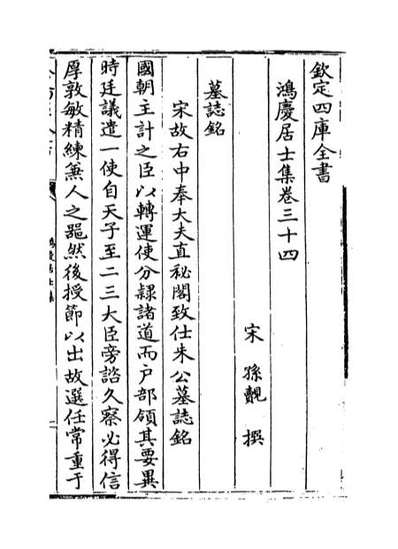 欽定四庫全書
鴻慶居士集卷三十四
宋 孫覿 撰
墓誌銘
宋故右中奉大夫直秘閣致仕朱公墓誌銘
國朝主計之臣以轉運使分隸諸道而户部領其要異
時廷議遣一使自天子至二三大臣旁諮久察必得信
厚敦敏精練兼人之器然後授節以出故選任常重于